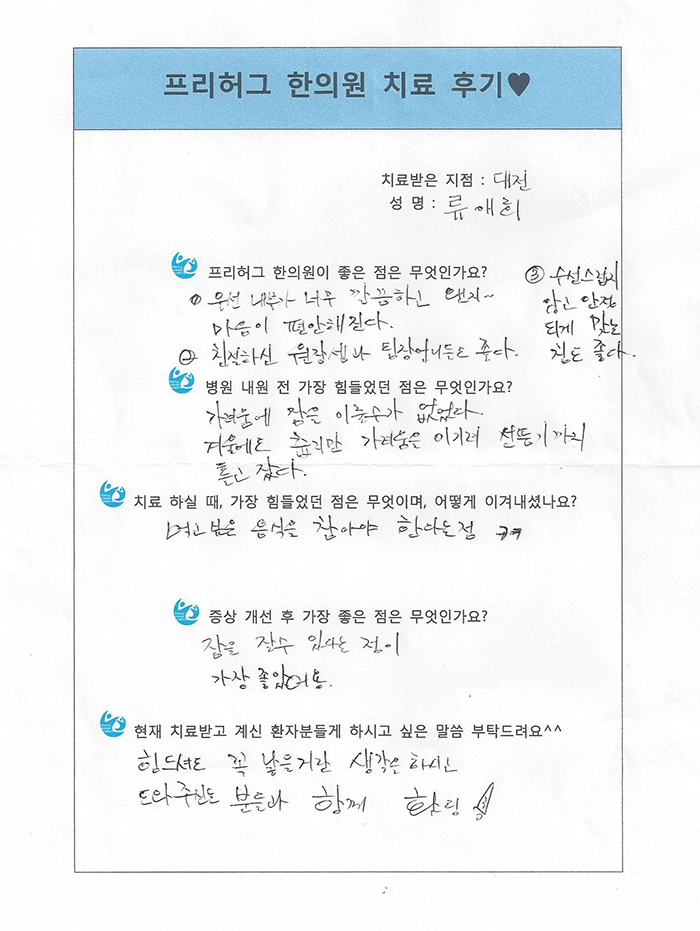 프리허그 한의원 치료 후기♥
치료받은 지점 : 대전
성 명 : 류애희
프리허그 한의원이 좋은 점은 무엇인가요?
① 우선 내부가 너무 깔끔하고 왠지~
마음이 편안해진다.
② 친절하신 원장쌤과 팀장언니들도 좋다.
③ 수선스럽지
않고 안정
되게 맞는
침도 좋다.
병원 내원 전 가장 힘들었던 점은 무엇인가요?
가려움에 잠을 이룰수가 없었다.
겨울에도 춥지만 가려움은 이기려 선풍기까지
틀고 잤다.
치료 하실 때, 가장 힘들었던 점은 무엇이며, 어떻게 이겨내셨나요?
먹고 싶은 음식을 참아야 한다는점 ㅠㅠ
증상 개선 후 가장 좋은 점은 무엇인가요?
잠을 잘수 있다는 점이
가장 좋았어용.
현재 치료받고 계신 환자분들게 하시고 싶은 말씀 부탁드려요^^
힘드셔도 꼭 낳을거란 생각을 하시고
도와주신는 분들과 함께 화팅